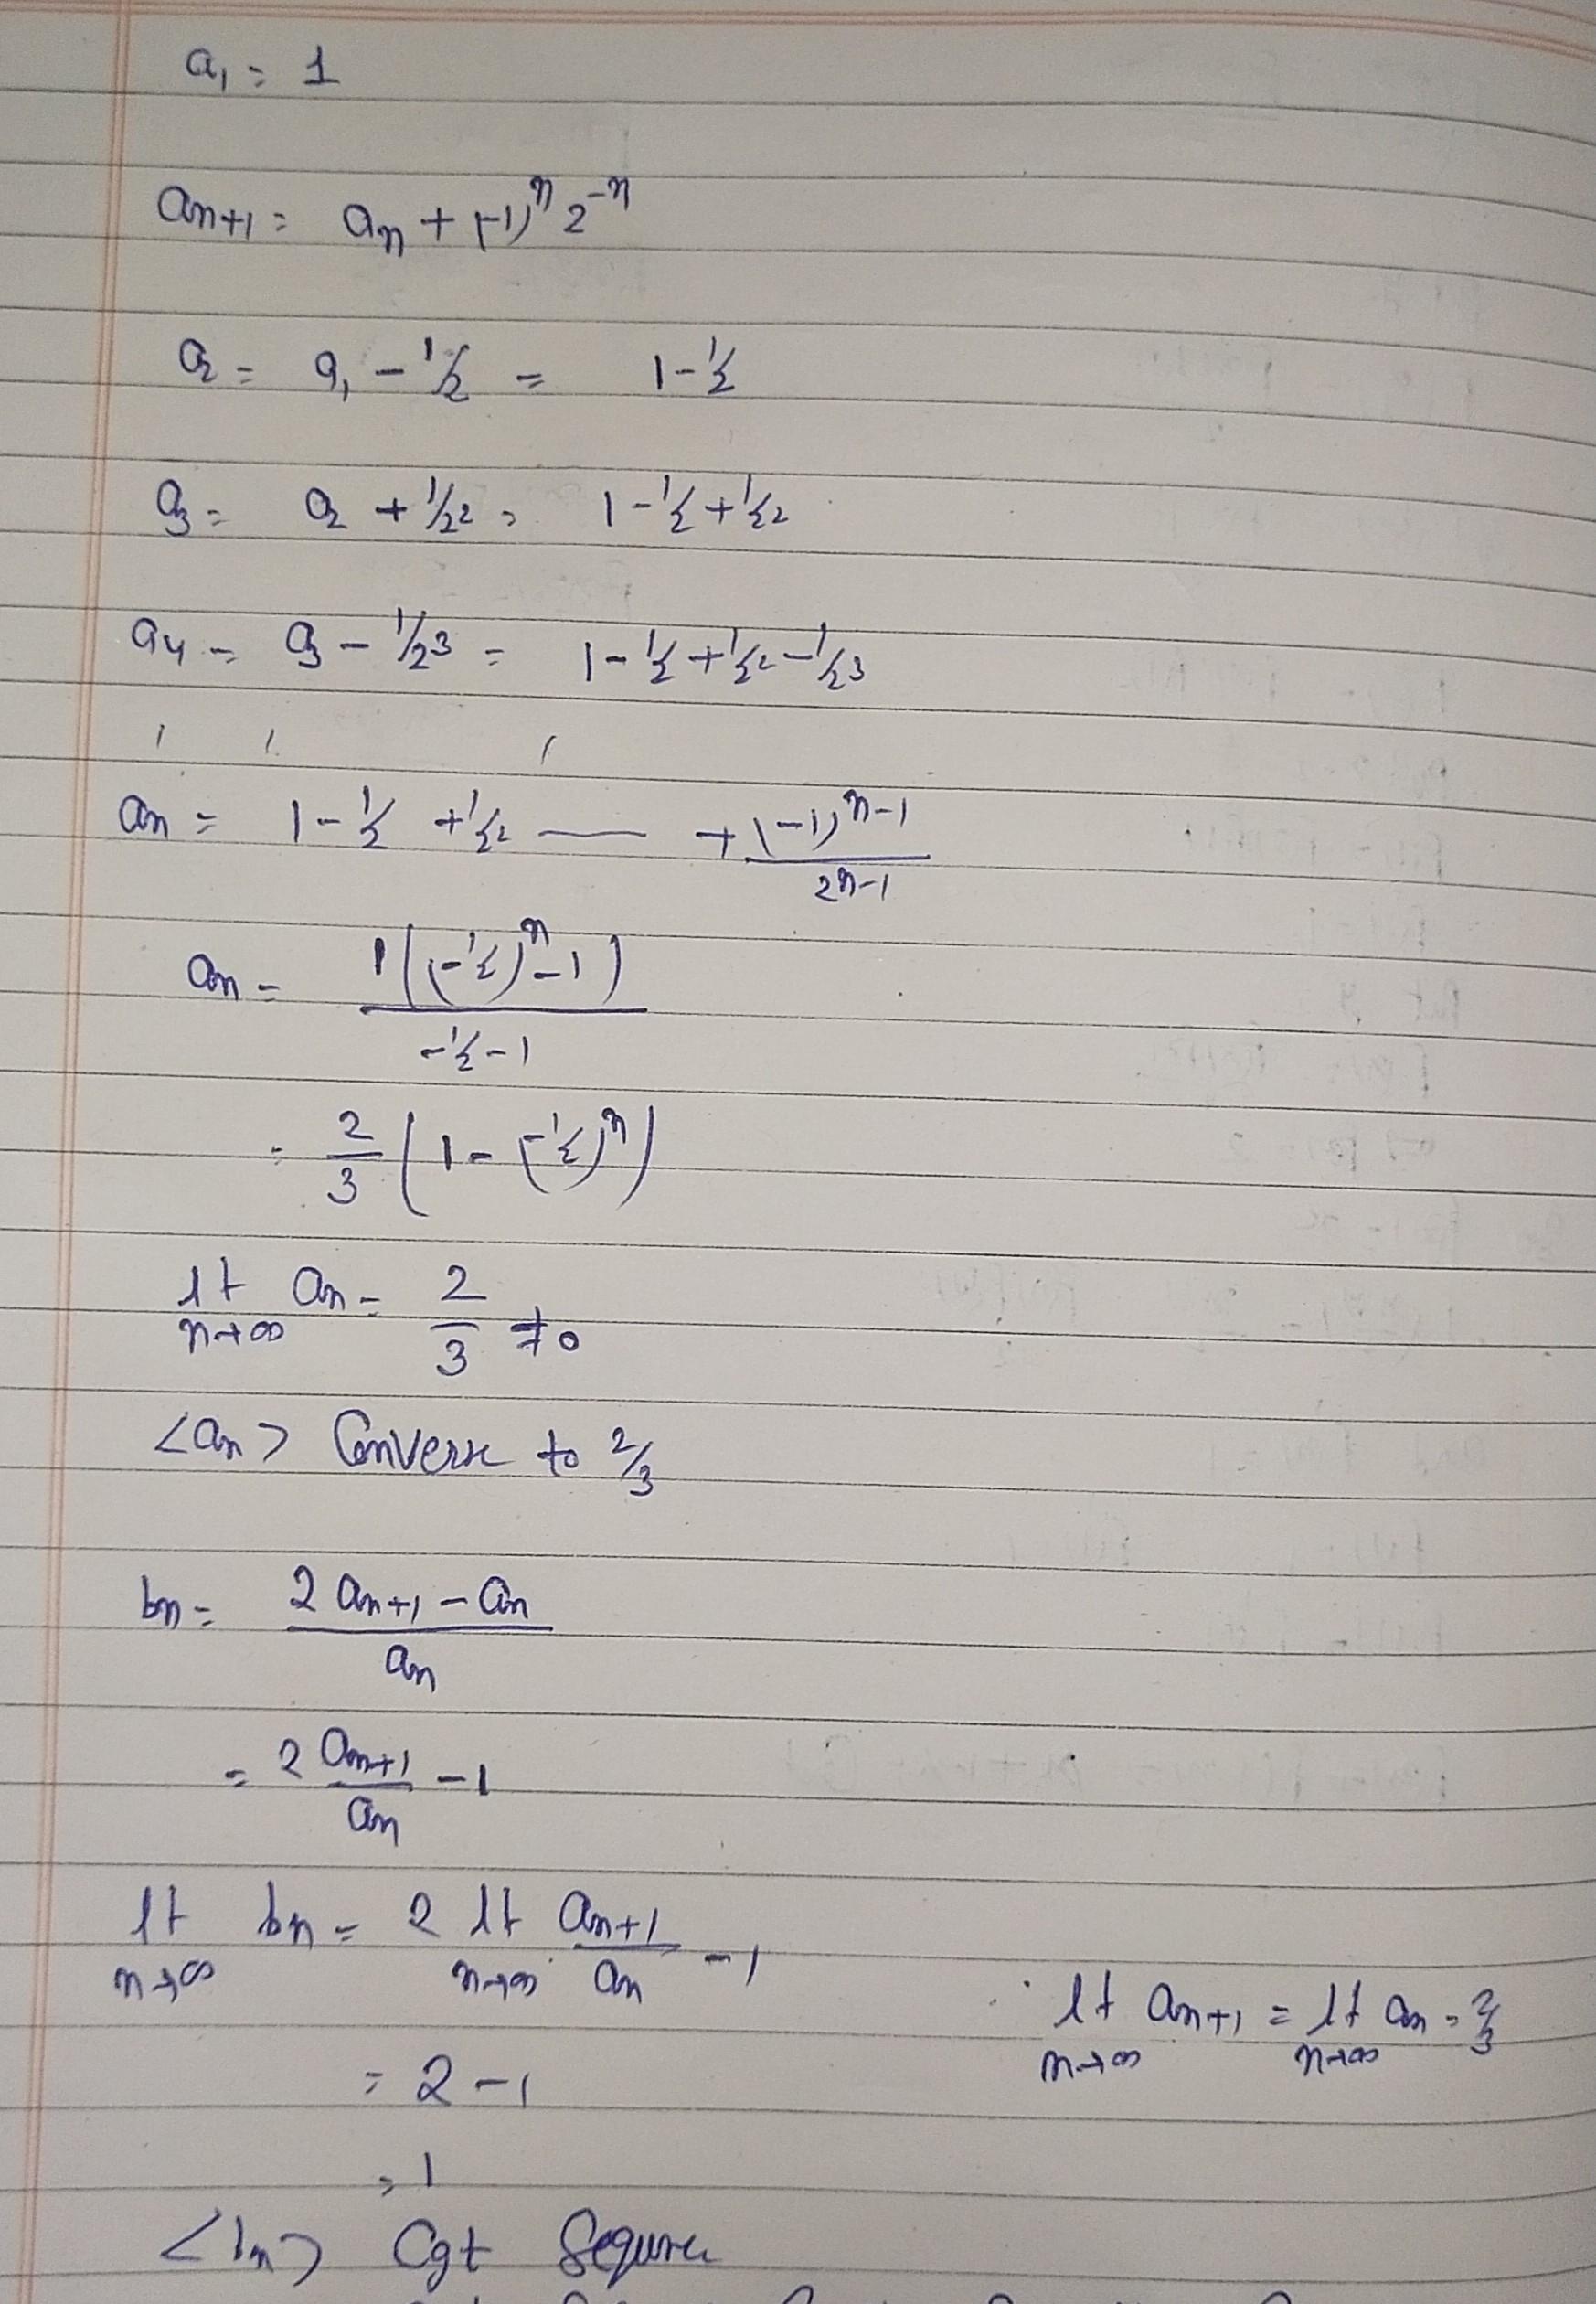 a₁ = 1
aₙ₊₁ = aₙ + (-1)ⁿ 2⁻ⁿ
a₂ = a₁ - 1/2 = 1 - 1/2
a₃ = a₂ + 1/2² = 1 - 1/2 + 1/2²
a₄ = a₃ - 1/2³ = 1 - 1/2 + 1/2² - 1/2³
aₙ = 1 - 1/2 + 1/2² — + (-1)ⁿ⁻¹/2ⁿ⁻¹
aₙ = 1((-1/2)ⁿ - 1)/(-1/2 - 1)
= 2/3 (1 - (-1/2)ⁿ)
lt n→∞ aₙ = 2/3 ≠ 0
<aₙ> Converse to 2/3
bₙ = (2aₙ₊₁ - aₙ)/aₙ
= 2 aₙ₊₁/aₙ - 1
lt n→∞ bₙ = 2 lt n→∞ aₙ₊₁/aₙ - 1
∵ lt n→∞ aₙ₊₁ = lt n→∞ aₙ = 2/3
= 2 - 1
= 1
<bₙ> Cgt